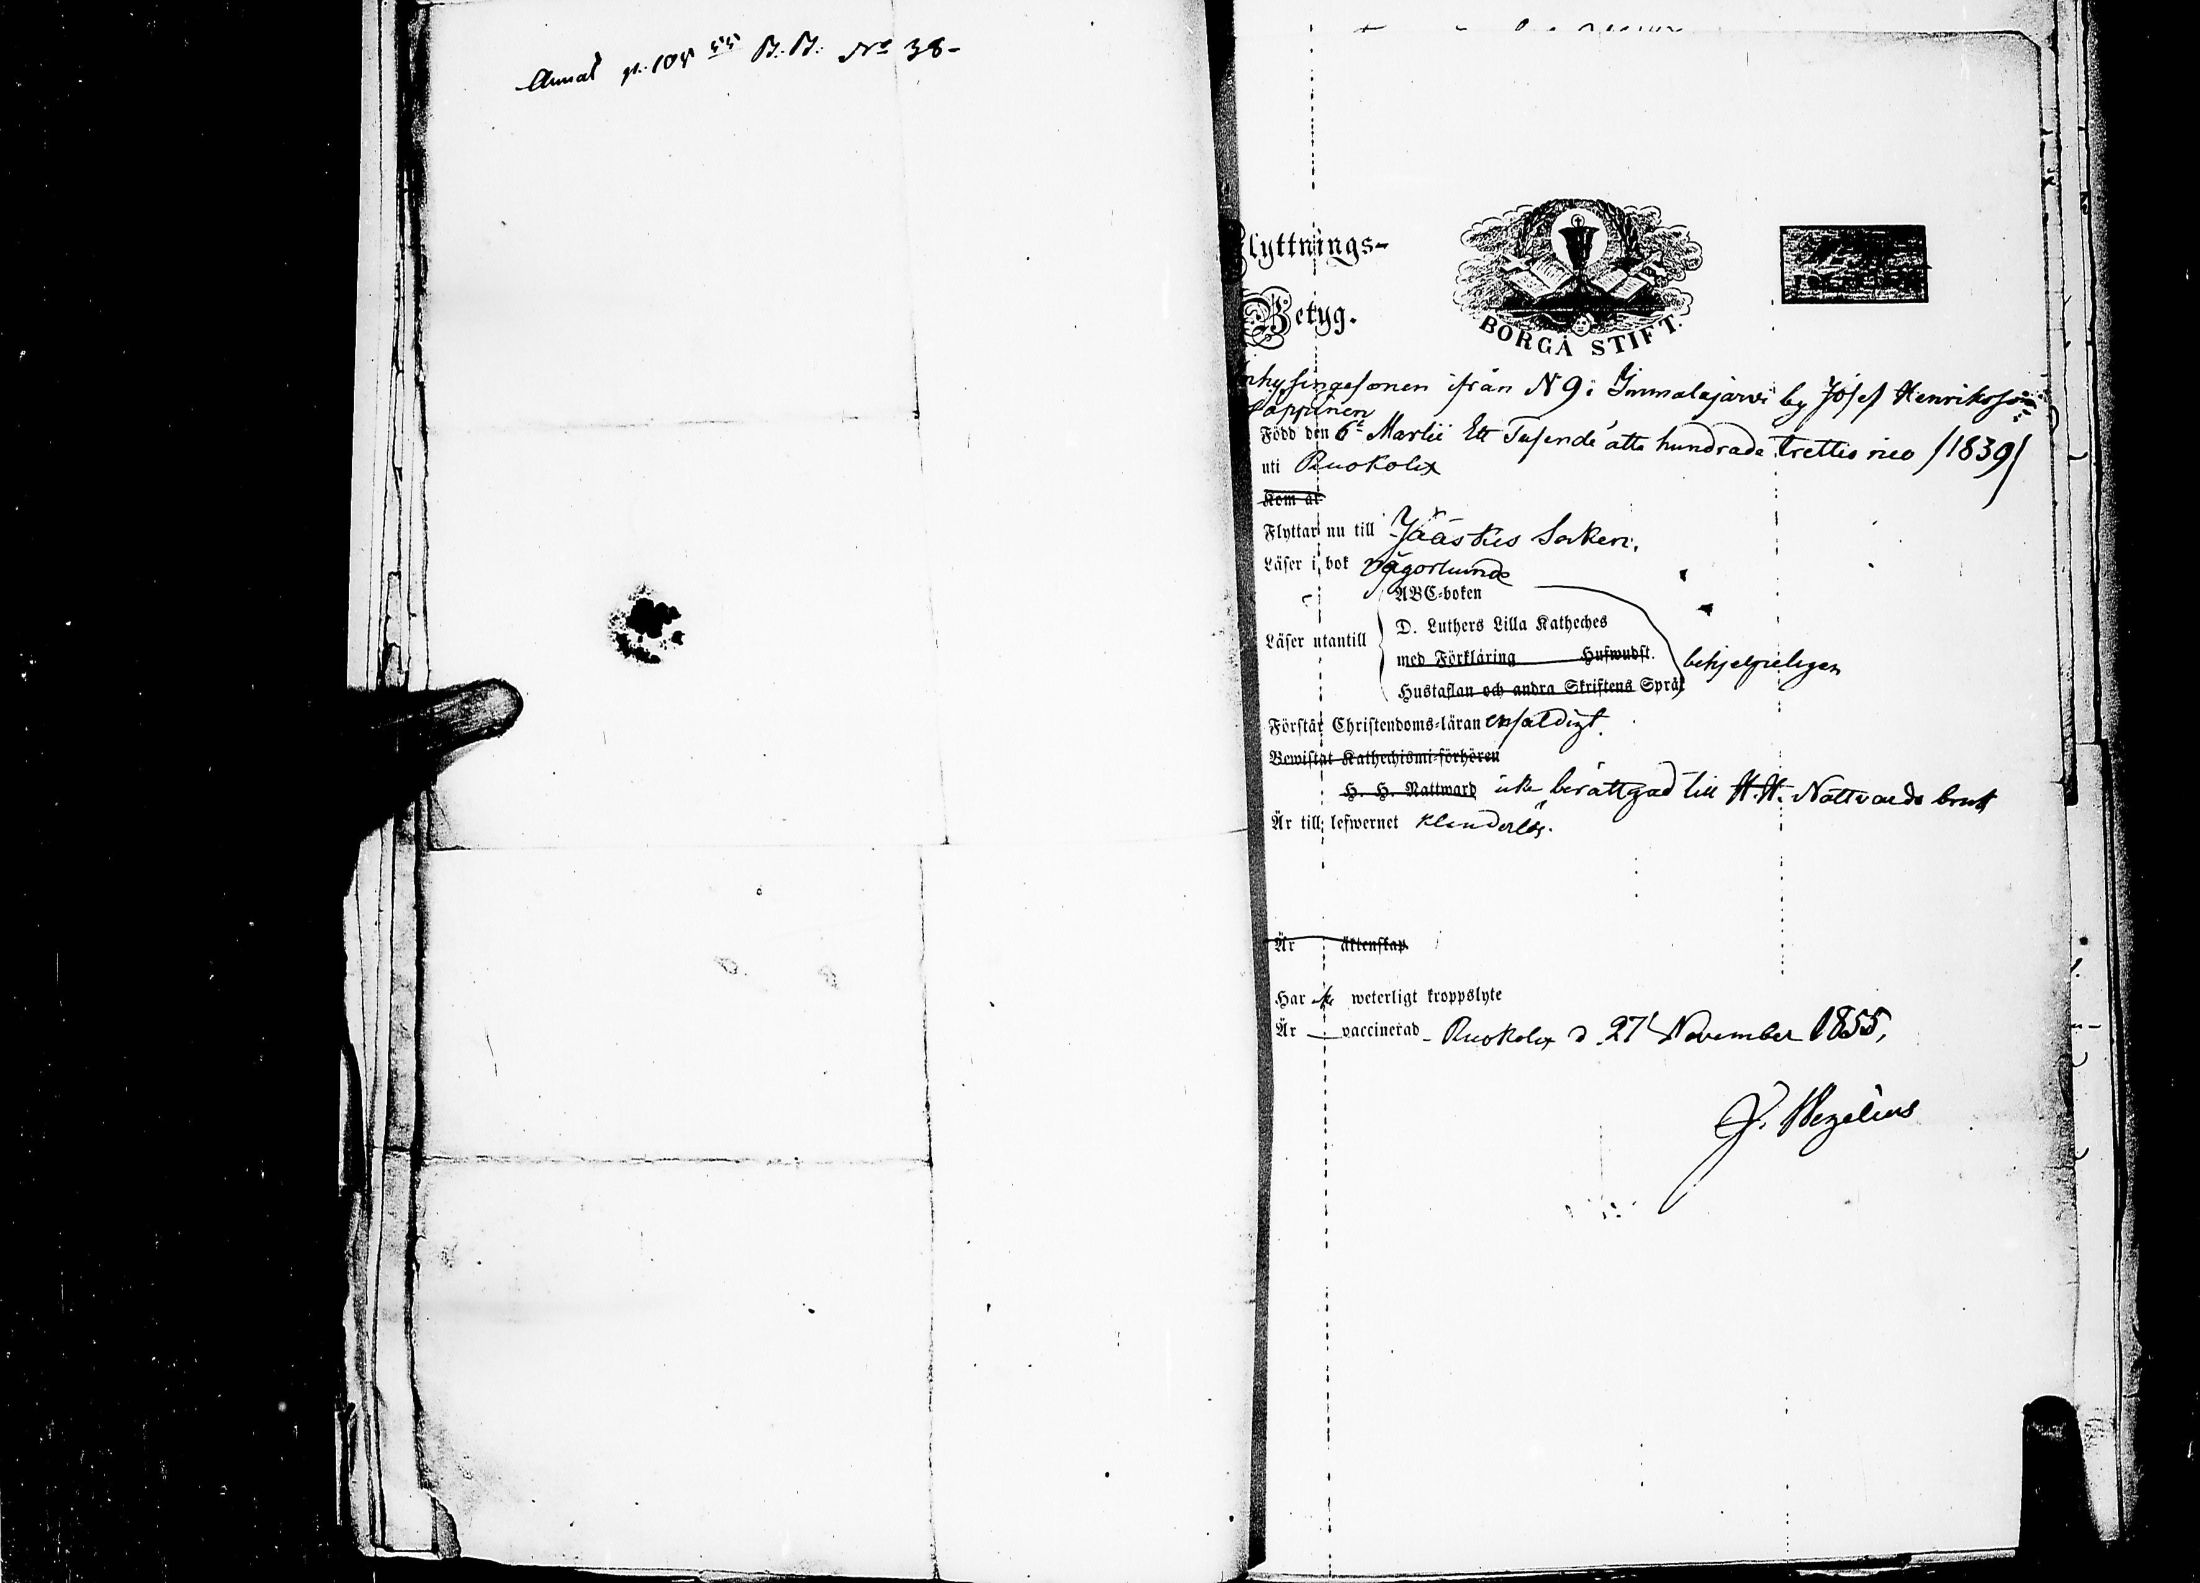 Annot p. 105 55 B. B. No 38-
Flyttnings-
Betyg.
BORGÅ STIFT.
Inhysingesonen ifrån N 9 i Immalajärvi by Josef Henriksson
Lappinen
Född den 6te Martii Ett Tusende åtta hundrade trettio nio /1839/
uti Ruokolax
Kom år
Flyttar nu till Jääskis Socken.
Läser i bok någorlunda
ABC-boken
D. Luthers Lilla Katheches
Läser utantill
med Förklaring Hufwudst. behjelpeligen
Hustaflan och andra Skriftens Språk
Förstår Christendoms-läran enfaldigt.
Bewistat Kathechismi-förhören
H. H. Nattward icke berättigad till H. H. Nattvards bruk
Är till lefwernet klanderlös.
Är äktenskap
Har weterligt kroppslyte
Är vaccinerad Ruokolax d 27 November 1855,
F. Wegelius